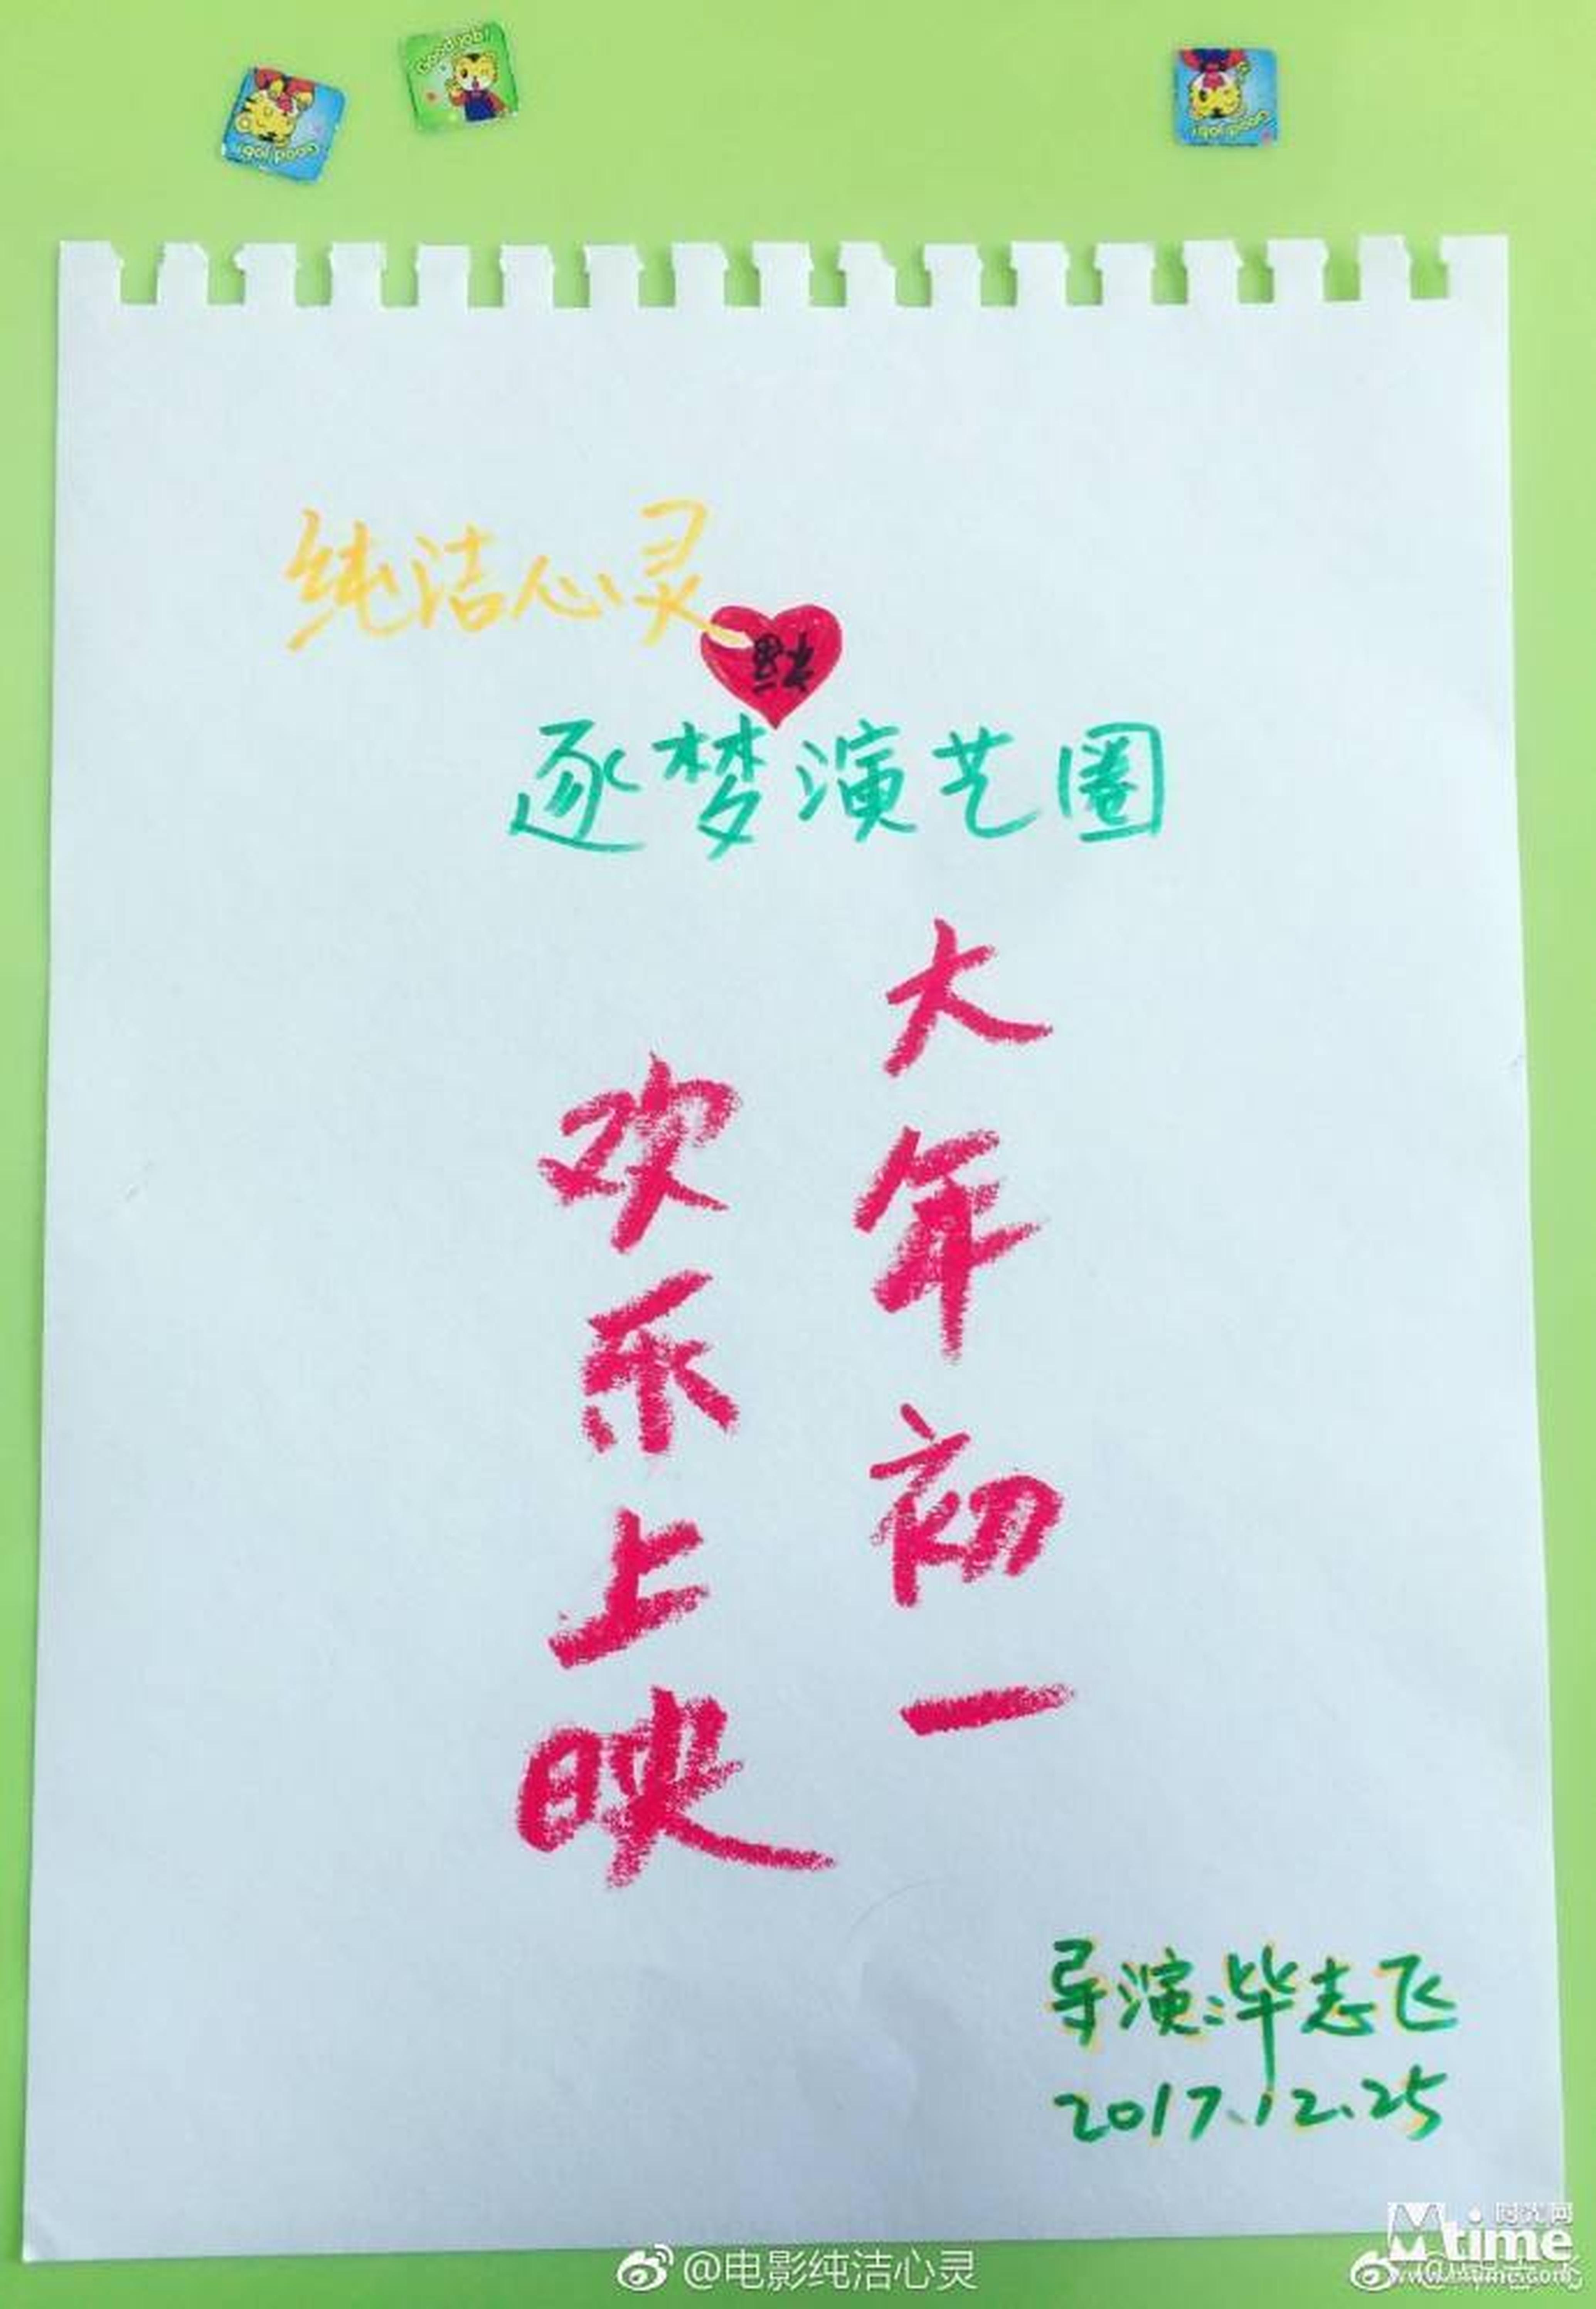 Good job!
Good job!
Good job!
纯洁心灵
逐梦演艺圈
大年初一
欢乐上映
导演:毕志飞
2017.12.25
@电影纯洁心灵
时光网
Mtime
www.mtime.com